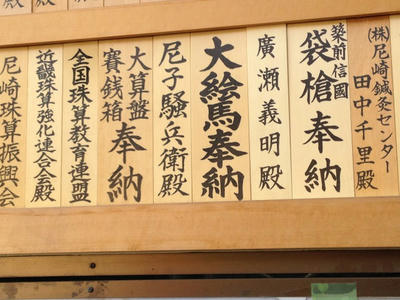 (株)尼崎鍼灸センター
田中千里殿
築前信國
袋槍奉納
廣瀬義明殿
大絵馬奉納
尼子騒兵衛殿
大算盤
賽銭箱 奉納
全国珠算教育連盟
近畿珠算強化連合会殿
尼崎珠算振興会